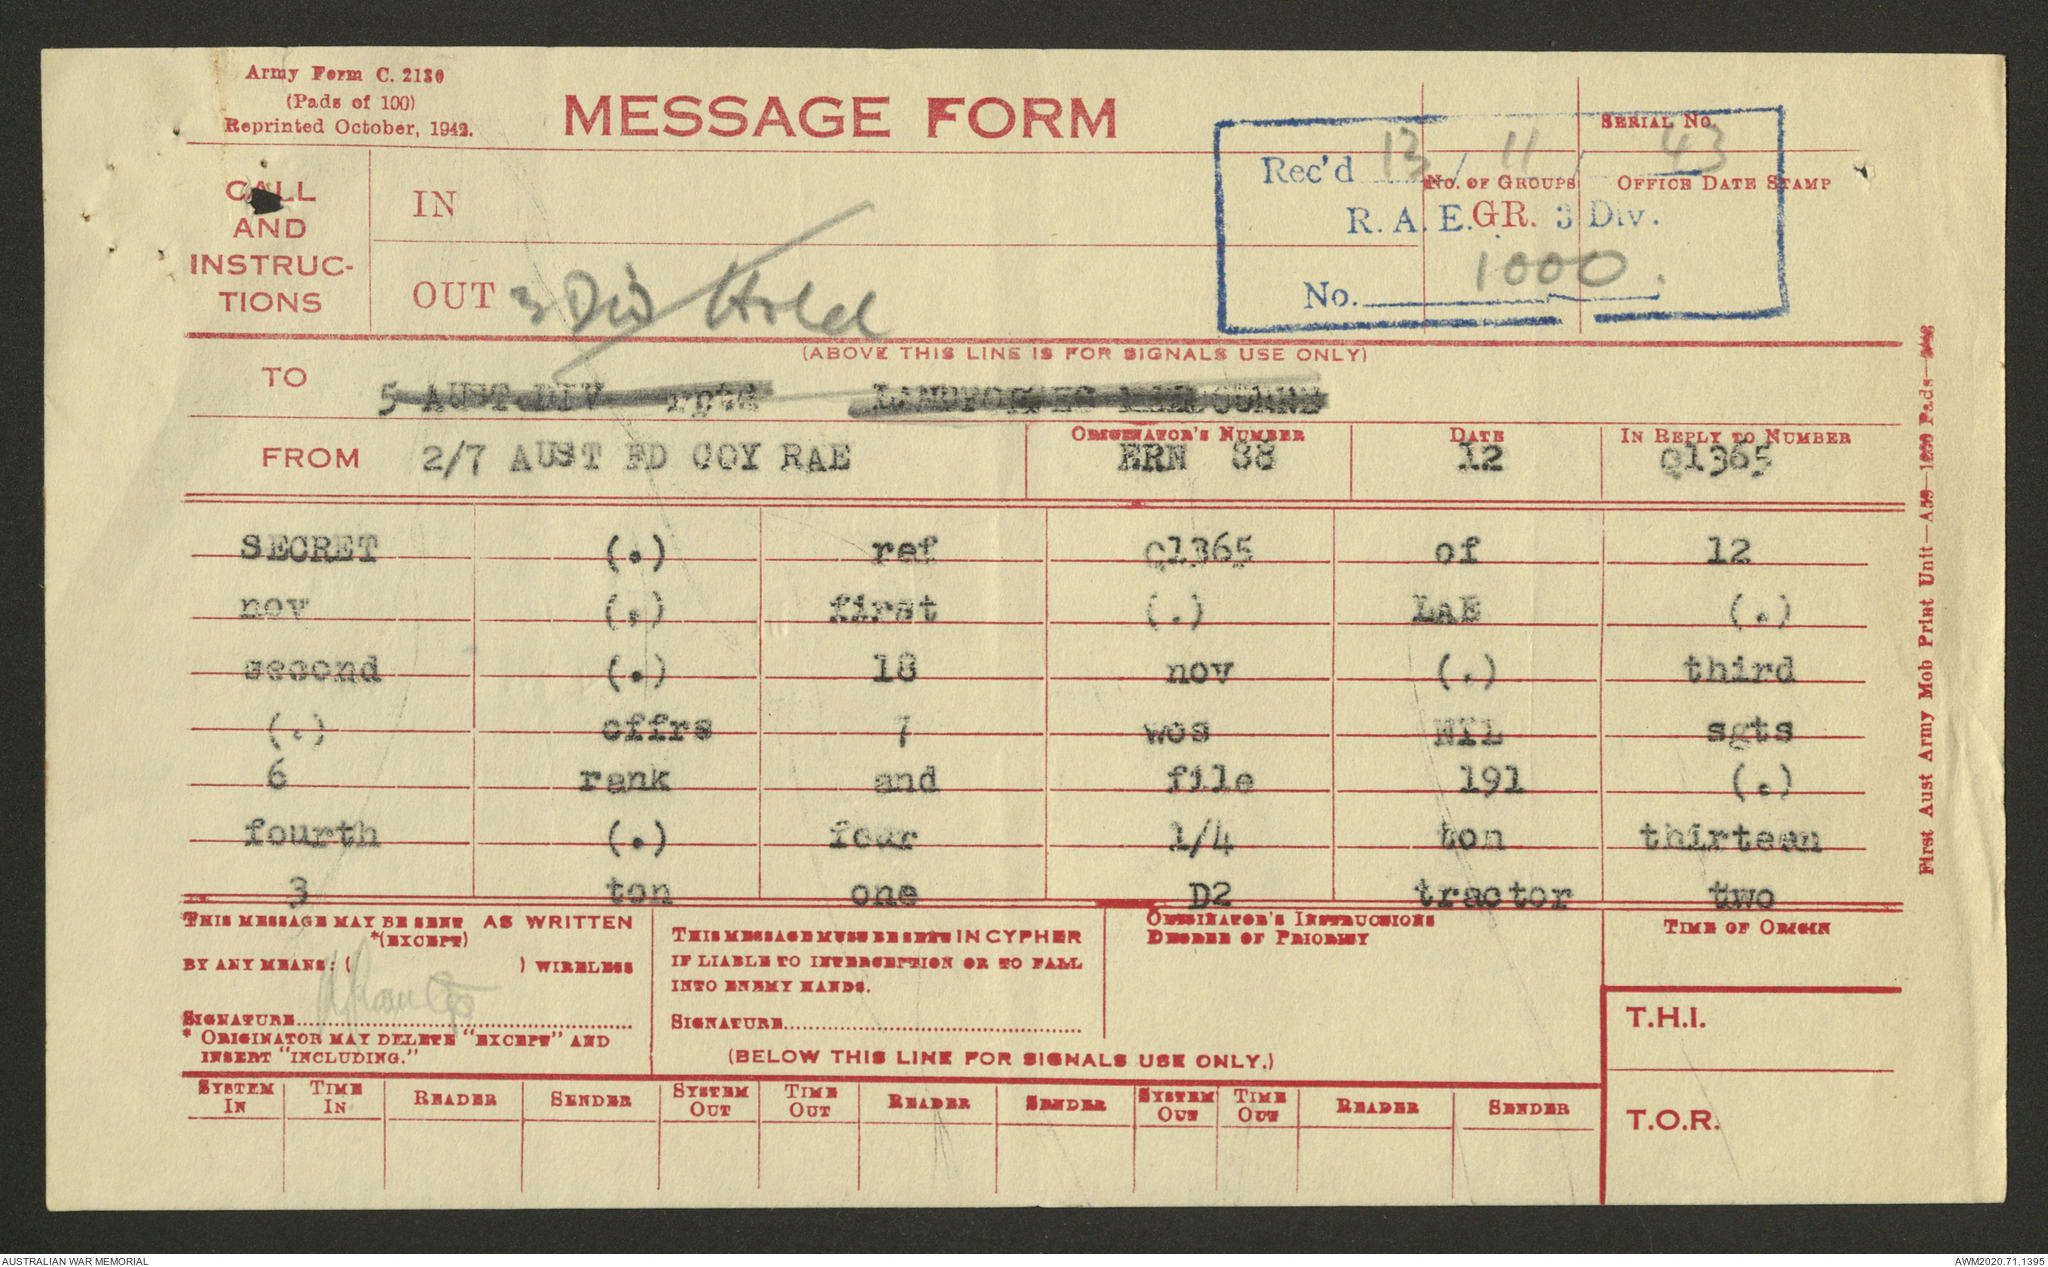 Army Form C. 2130
(Pads of 100)
Reprinted October, 1942.
MESSAGE FORM
SERIAL No.
Rec'd 13 / 11 / 43
No. OF GROUPS
OFFICE DATE STAMP
CALL
AND
INSTRUC-
TIONS
IN
GR.
R. A. E. 3 Div.
OUT 3 Div Hold
No. 1000.
(ABOVE THIS LINE IS FOR SIGNALS USE ONLY)
TO 5 AUST DIV rptd LANDFORCES MELBOURNE
FROM 2/7 AUST FD COY RAE
ORIGINATOR'S NUMBER
ERN 88
DATE
12
IN REPLY TO NUMBER
Q1365
SECRET (.) ref Q1365 of 12
nov (.) first (.) LAE (.)
second (.) 18 nov (.) third
(.) offrs 7 wos NIL sgts
6 rank and file 191 (.)
fourth (.) four 1/4 ton thirteen
3 ton one D2 tractor two
THIS MESSAGE MAY BE SENT AS WRITTEN
*(EXCEPT)
BY ANY MEANS: ( ) WIRELESS
SIGNATURE
* ORIGINATOR MAY DELETE "EXCEPT" AND
INSERT "INCLUDING."
THIS MESSAGE MUST BE SENT IN CYPHER
IF LIABLE TO INTERCEPTION OR TO FALL
INTO ENEMY HANDS.
SIGNATURE
ORIGINATOR'S INSTRUCTIONS
DEGREE OF PRIORITY
TIME OF ORIGIN
(BELOW THIS LINE FOR SIGNALS USE ONLY.)
T.H.I.
T.O.R.
SYSTEM IN
TIME IN
READER
SENDER
SYSTEM OUT
TIME OUT
READER
SENDER
SYSTEM OUT
TIME OUT
READER
SENDER
First Aust Army Mob Print Unit—A59—1250 Pads—
AUSTRALIAN WAR MEMORIAL
AWM2020.71.1395